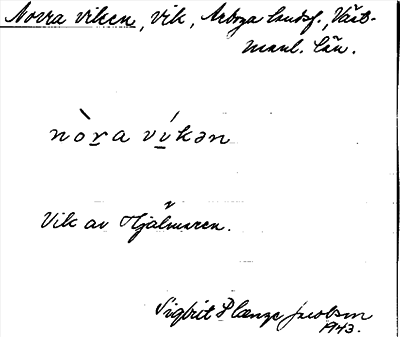 Norra viken, Vik, Arboga landsf., Väst-
manl. län.
nòra víkən
Vik av Hjälmaren.
Sigbrit Plænge Jacobson
1943.